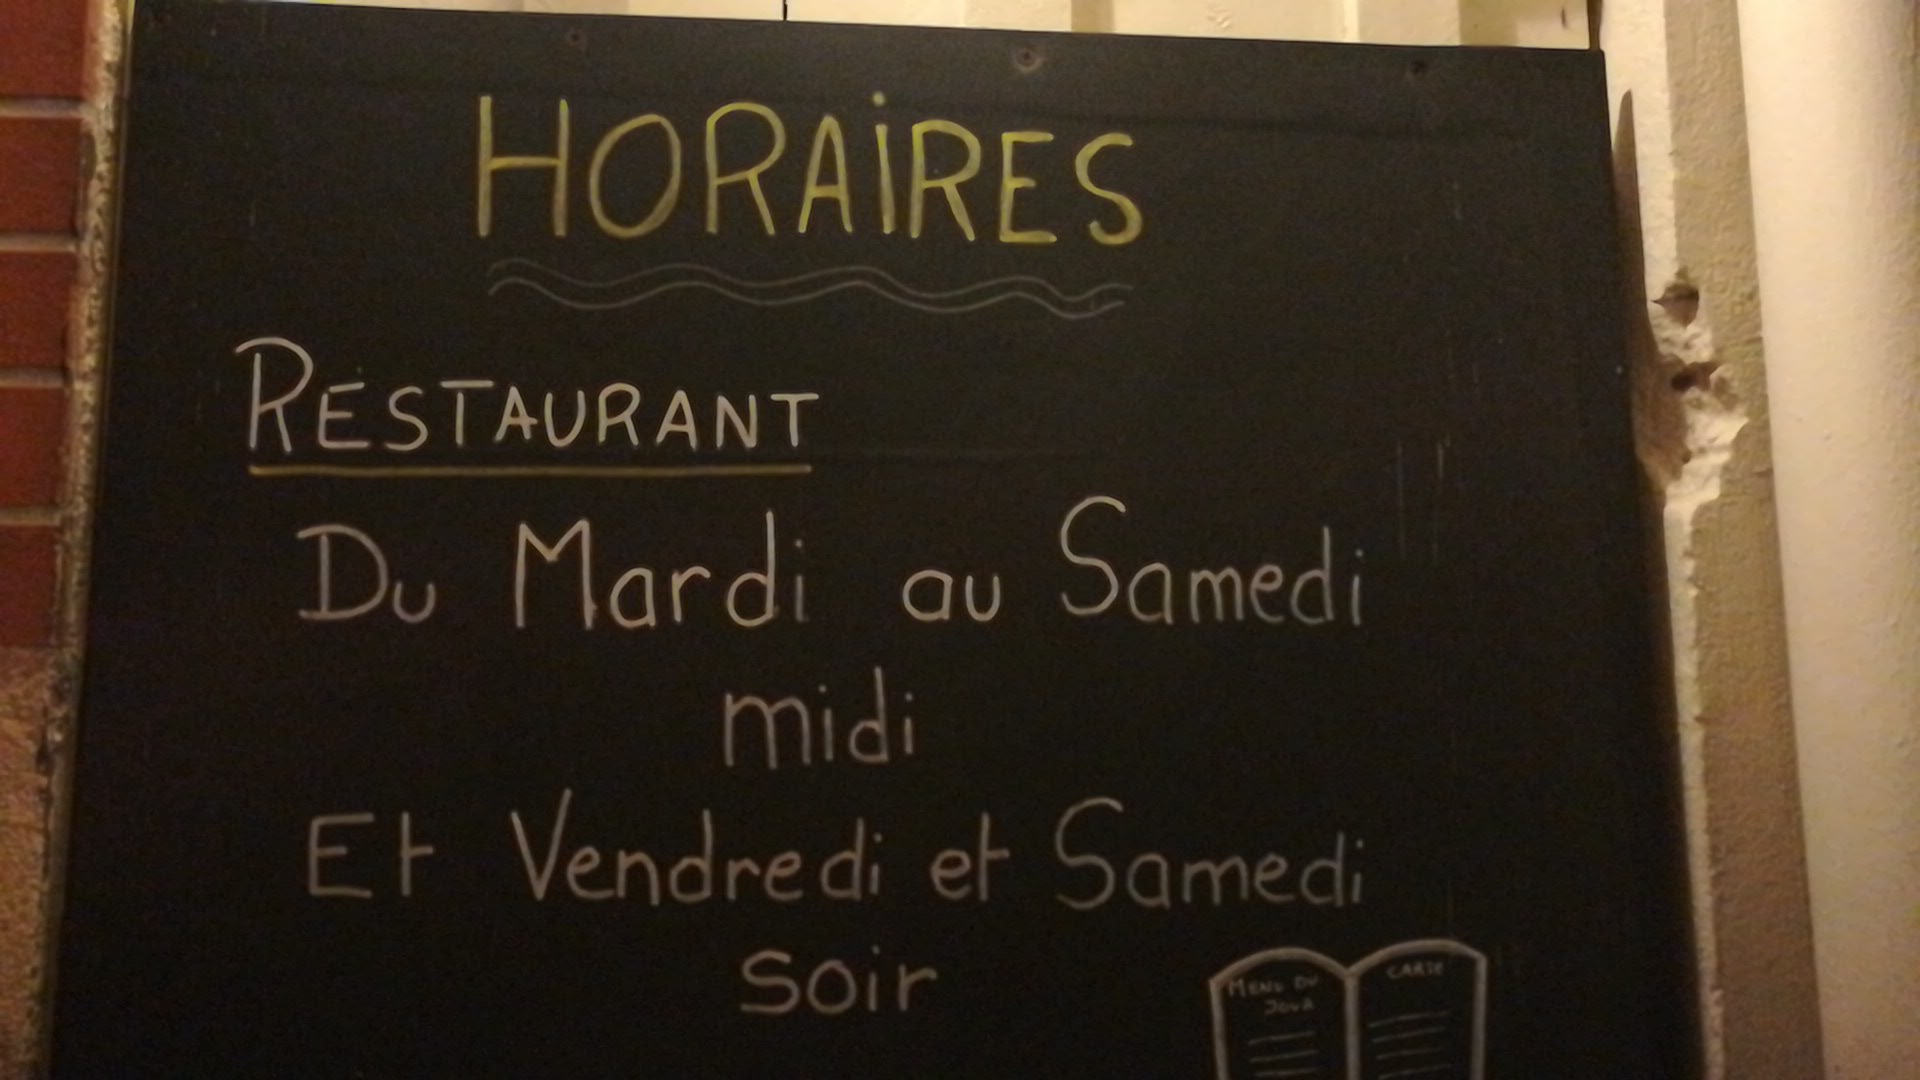 HORAiRES
RESTAURANT
Du Mardi au Samedi
midi
Et Vendredi et Samedi
soir
MENU DU
JOUR
CARTE